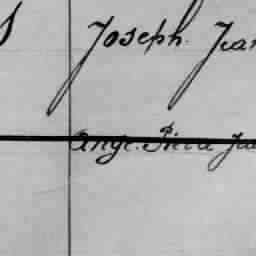 Joseph. Jean
Ange. Pierre Jea